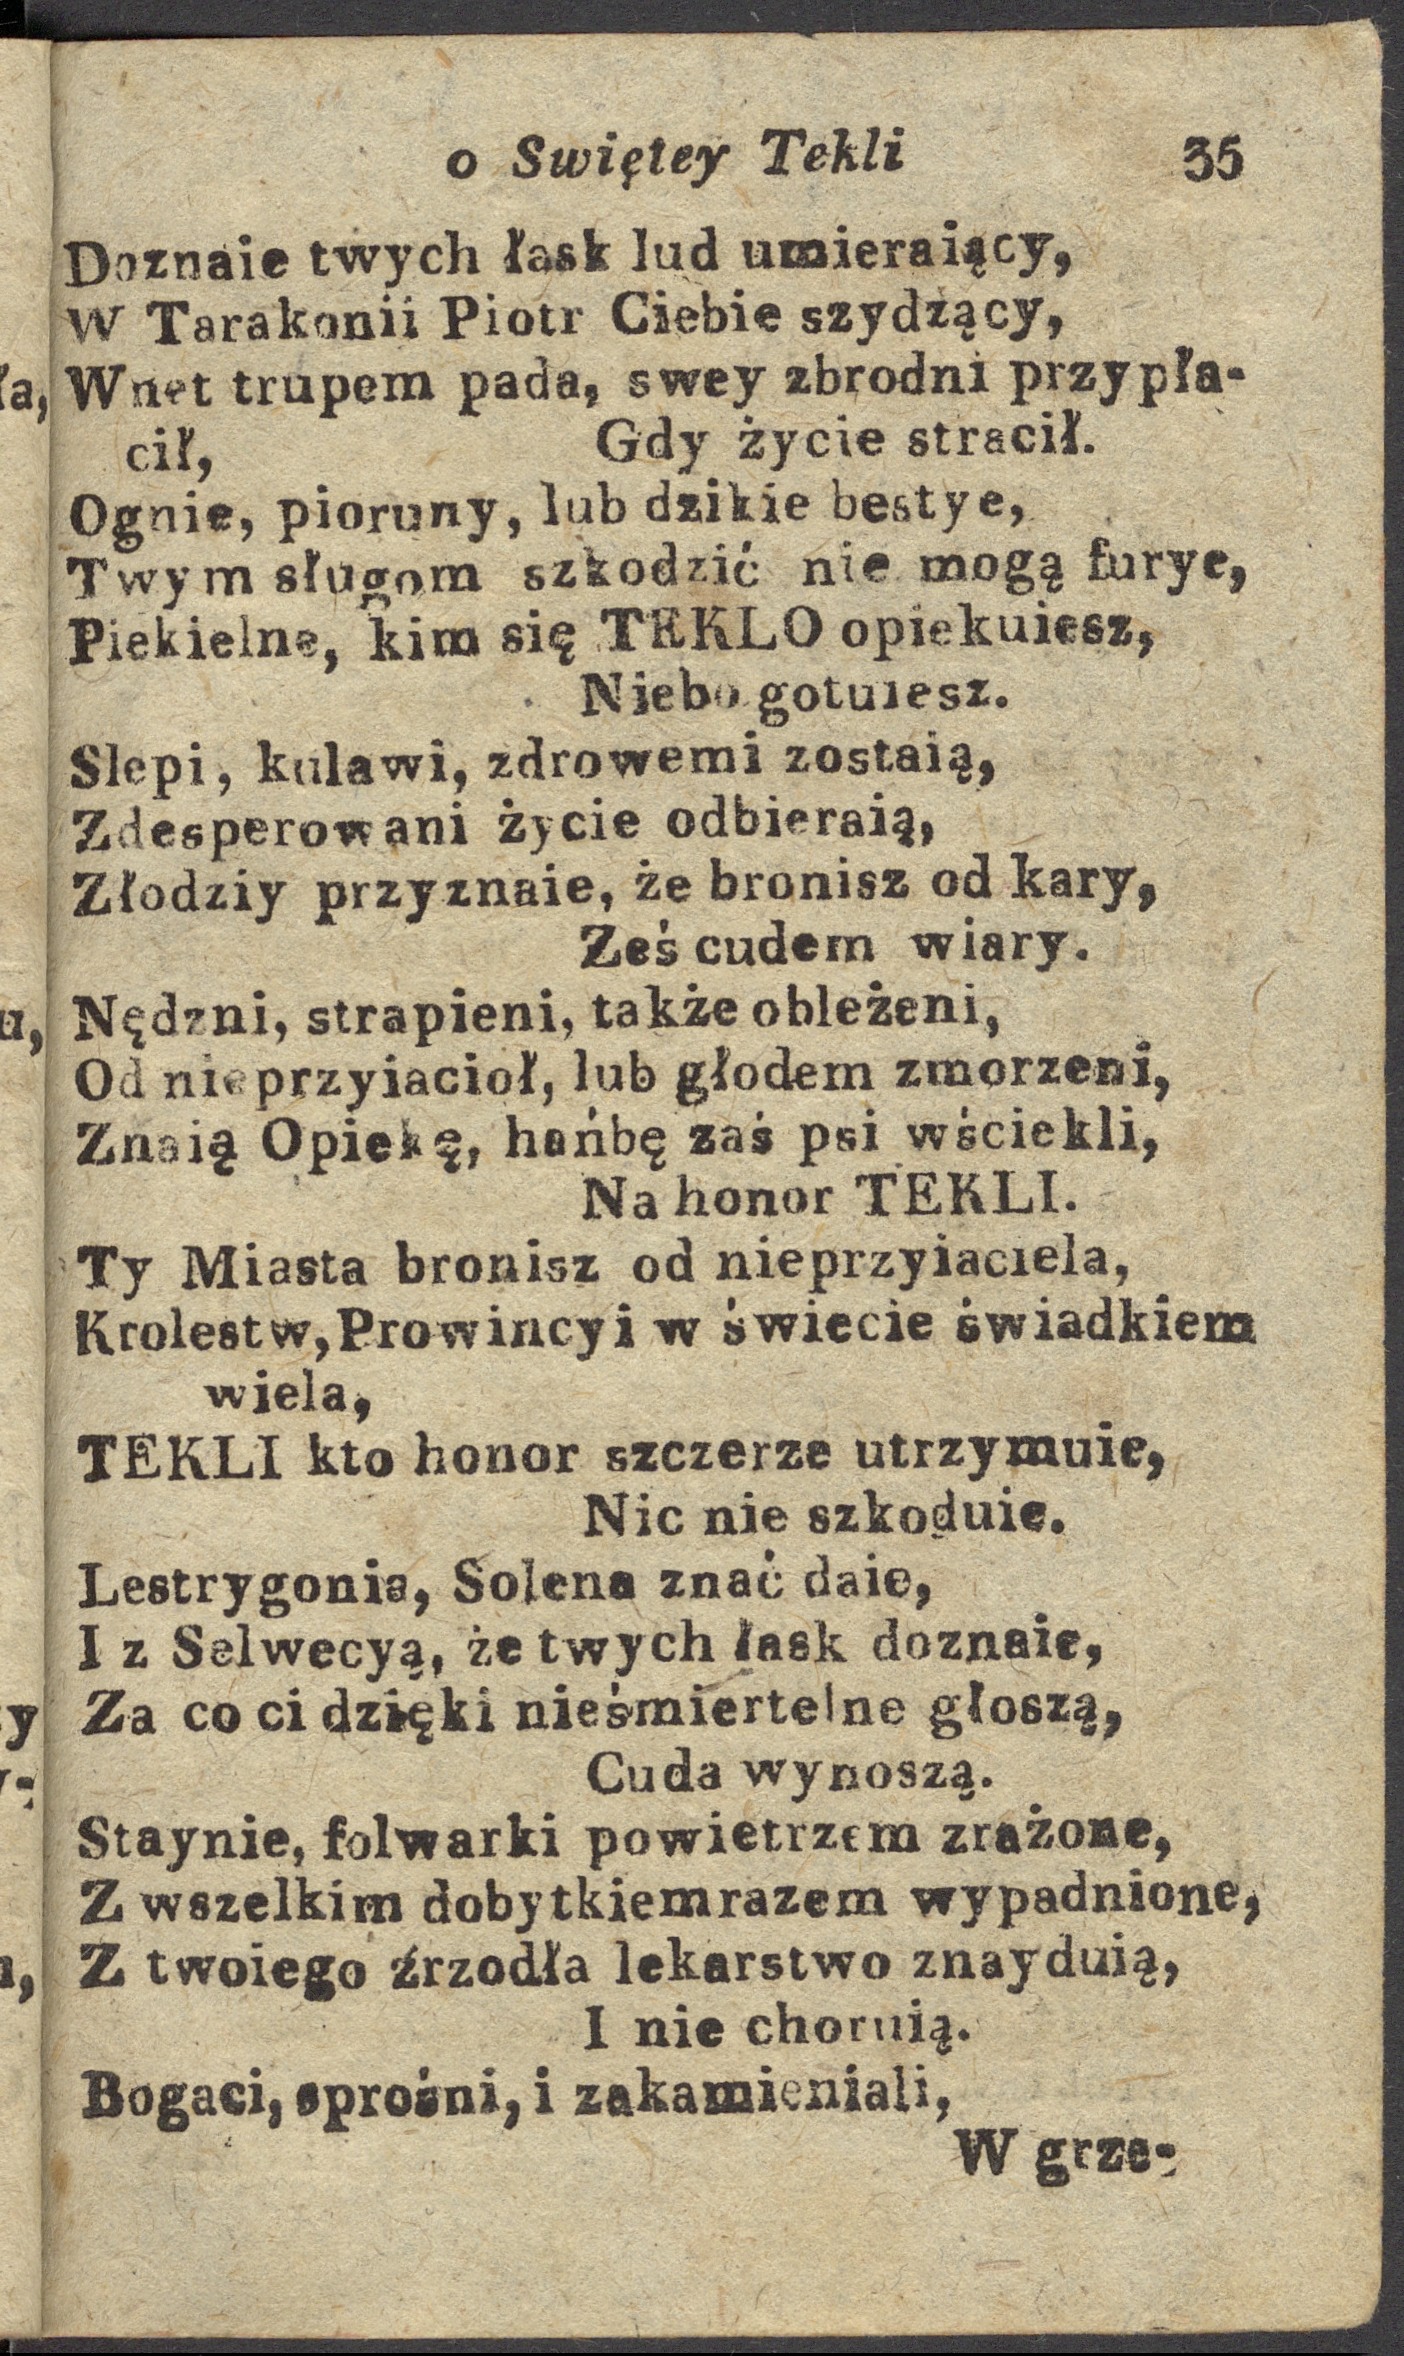 o Swiętey Tekli 35
Doznaie twych łask lud umieraiący,
W Tarakonii Piotr Ciebie szydzący,
Wnet trupem pada, swey zbrodni przypła-
cił, Gdy życie stracił.
Ognie, pioruny, lub dzikie bestye,
Twym sługom szkodzić nie mogą furye,
Piekielne, kim się TEKLO opiekuiesz,
Niebo gotuiesz.
Slepi, kulawi, zdrowemi zostaią,
Zdesperowani życie odbieraią,
Złodziy przyznaie, że bronisz od kary,
Ześ cudem wiary.
Nędzni, strapieni, także obleżeni,
Od nieprzyiacioł, lub głodem zmorzeni,
Znaią Opiekę, hańbę zaś psi wściekli,
Na honor TEKLI.
Ty Miasta bronisz od nieprzyiaciela,
Krolestw, Prowincyi w świecie świadkiem
wiela,
TEKLI kto honor szczerze utrzymuie,
Nic nie szkoduie.
Lestrygonia, Solena znać daie,
I z Selwecyą, że twych łask doznaie,
Za co ci dzięki nieśmiertelne głoszą,
Cuda wynoszą.
Staynie, folwarki powietrzem zrażone,
Z wszelkim dobytkiem razem wypadnione,
Z twoiego źrzodła lekarstwo znayduią,
I nie choruią.
Bogaci, sprośni, i zakamieniali,
W grze-